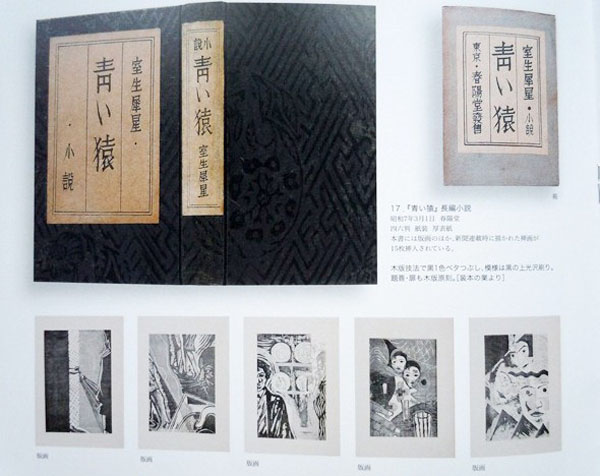 室生犀星・
青い猿
・小説
小説
青い猿
室生犀星
室生犀星・小説
青い猿
東京・春陽堂発售
函
17 『青い猿』長編小説
昭和7年3月1日 春陽堂
四六判 紙装 厚表紙
本書には版画のほか、新聞連載時に描かれた挿画が
15枚挿入されている。
木版技法で黒1色ベタつぶし、模様は黒の上光沢刷り。
題簽・扉も木版原刻。[装本の栞より]
版画
版画
版画
版画
版画